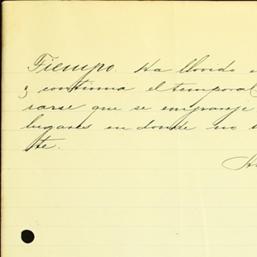 Tiempo. Ha llovido
y continua el temporal
rarse que se empranje
lugares en donde no
te.